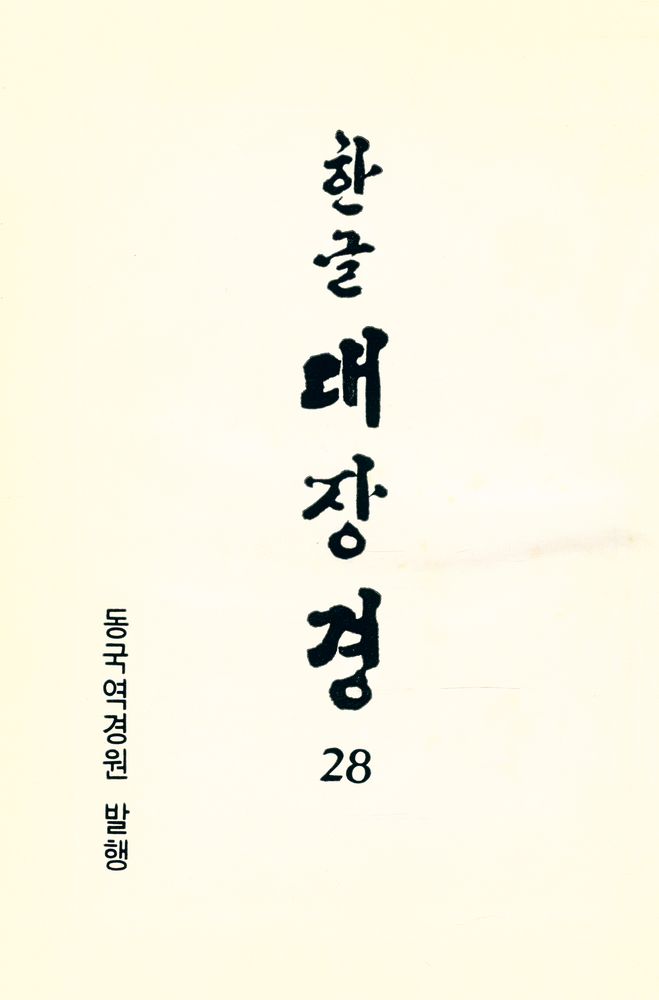 한글 대장경
28
동국역경원 발행